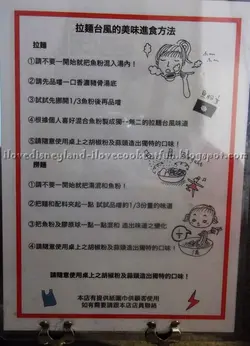 拉麵台風的美味進食方法
拉麵
①請不要一開始就把魚粉混入湯內！
②請先品嚐一口香濃豬骨湯底
③試試先挪開1/3魚粉後再品嚐
④根據個人喜好混合魚粉製成獨一無二的拉麵台風味道
⑤請隨意使用桌上之胡椒粉及蒜頭造出獨特的口味！
ilovedisneyland-ilovecook
blogspot.com
撈麵
①請不要一開始就把湯混和魚粉！
②把麵和配料夾起一點 試試品嚐約1/3份量的味道
③把魚粉及膠底球一點一點混和
④請隨意使用桌上之胡椒粉及蒜頭造出獨特的口味！
請隨意使用桌上之胡椒粉及蒜頭造出獨特的口味！
本店有提供紙圍巾供顧客使用
如有需要請跟本店店員聯絡